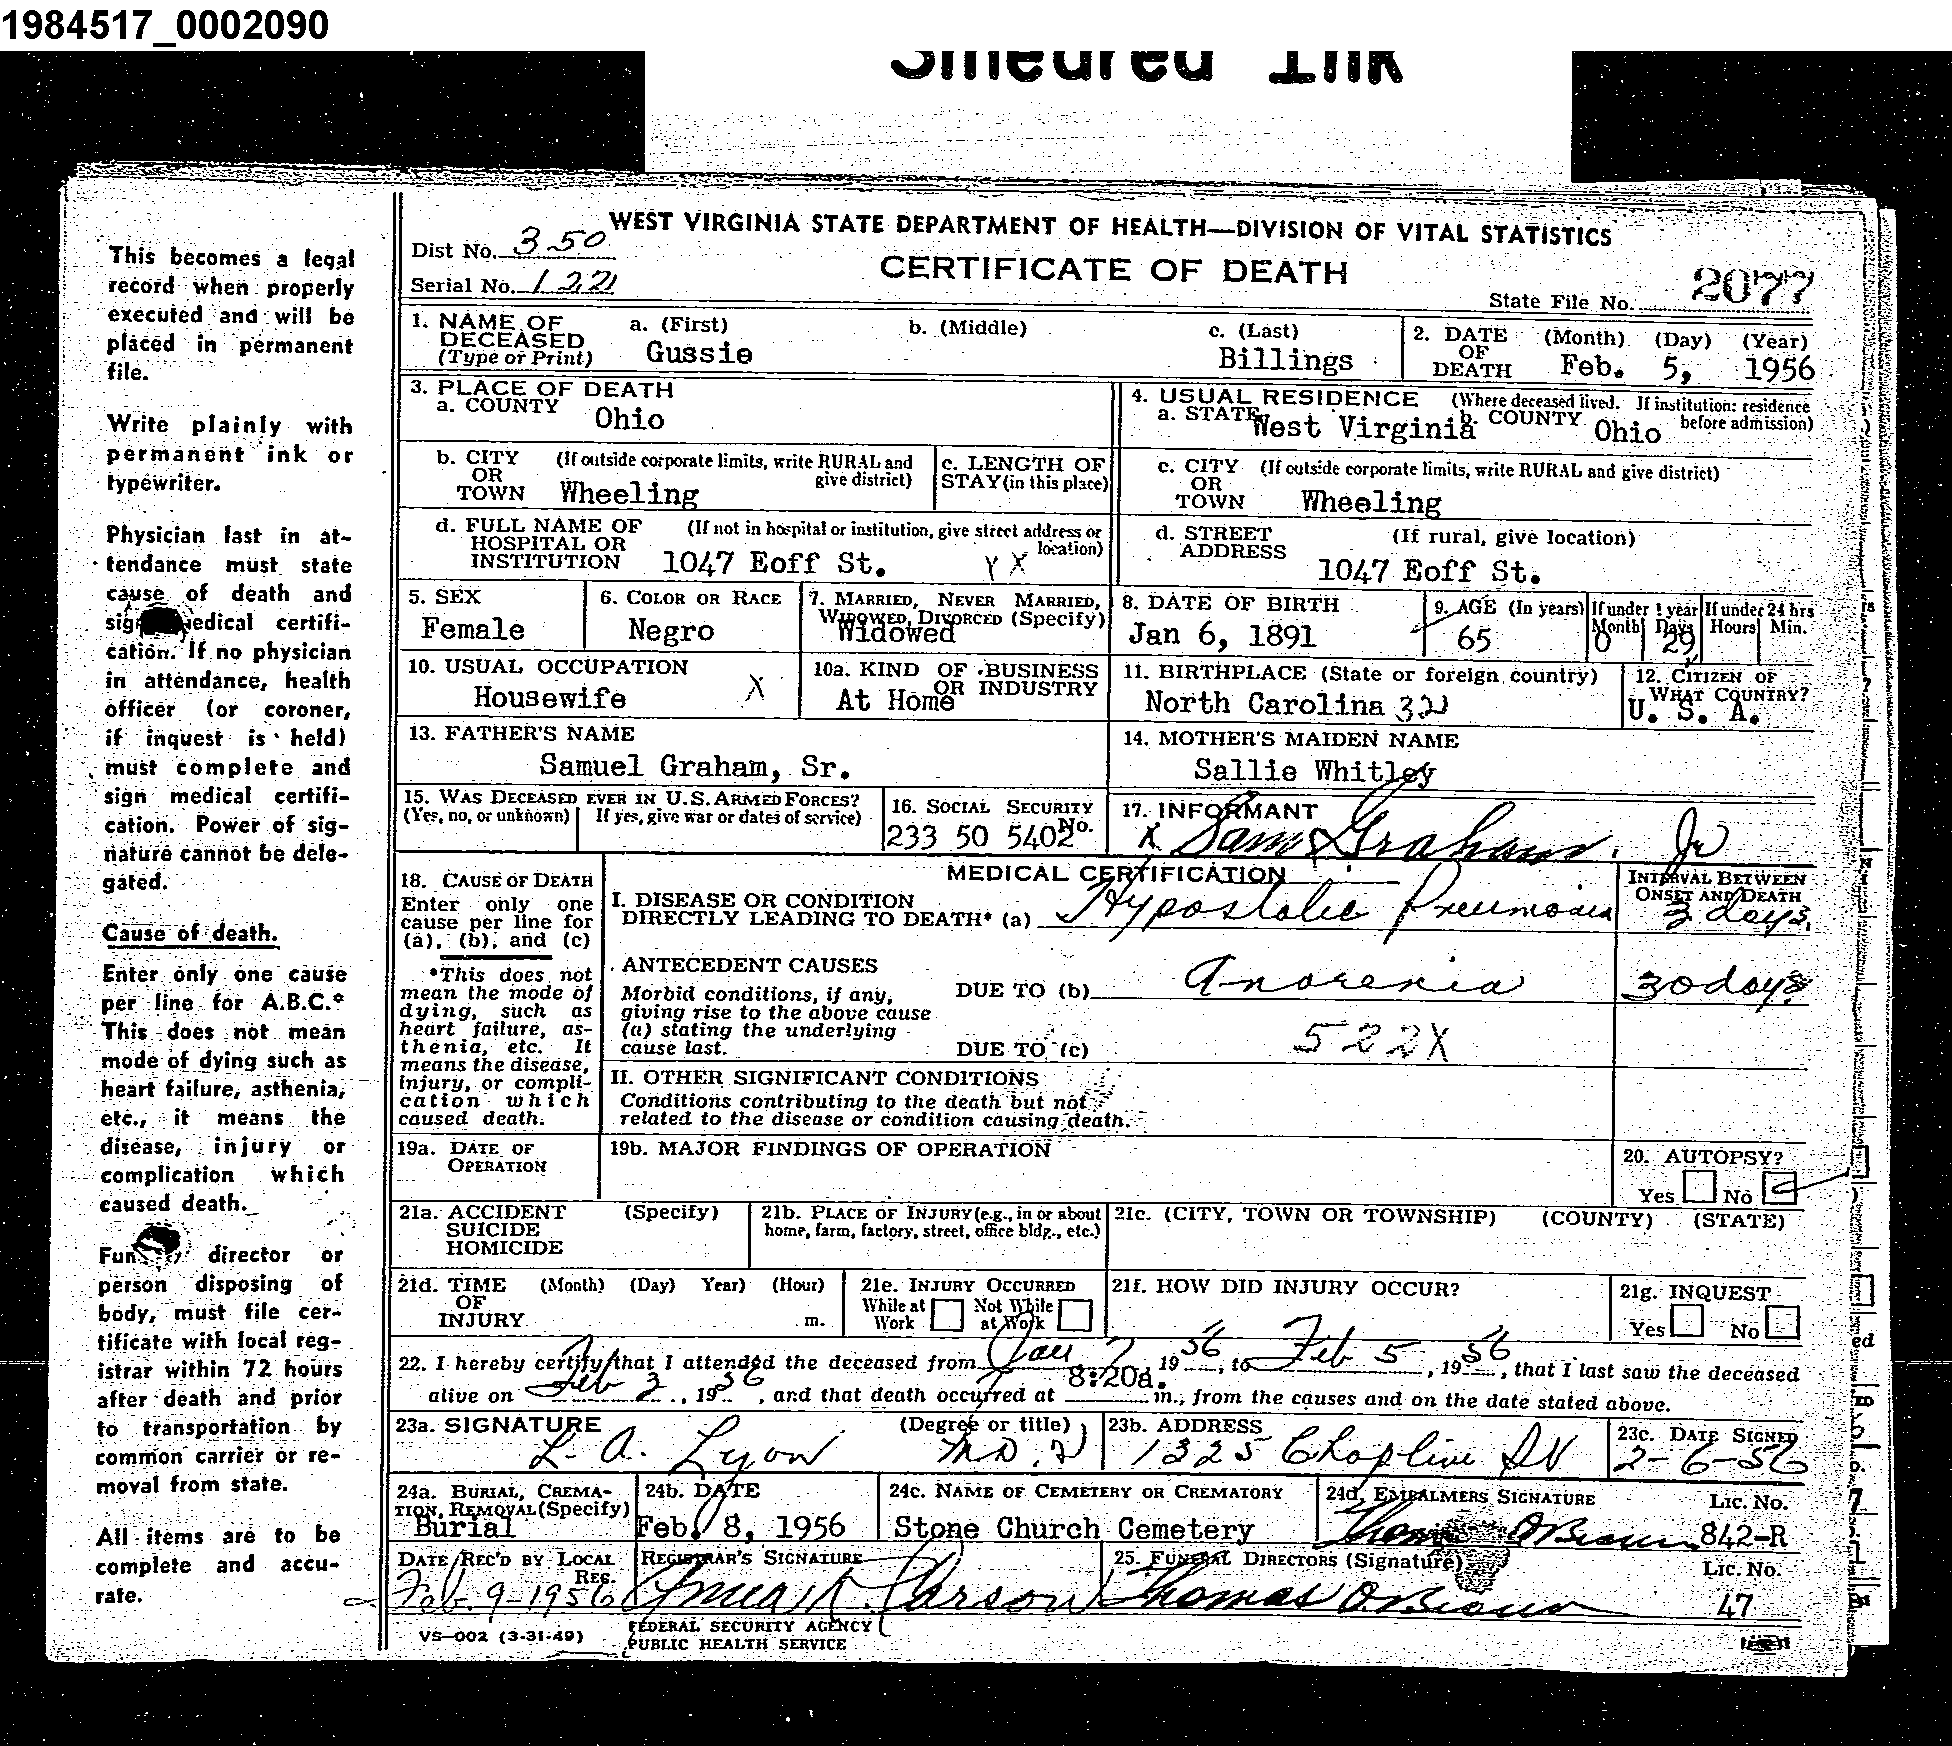 1984517_0002090
Smeared Ink
WEST VIRGINIA STATE DEPARTMENT OF HEALTH—DIVISION OF VITAL STATISTICS
Dist No. 350
CERTIFICATE OF DEATH
Serial No. 122
State File No. 2077
This becomes a legal
record when properly
executed and will be
placed in permanent
file.
Write plainly with
permanent ink or
typewriter.
Physician last in at-
tendance must state
cause of death and
medical certifi-
cation. If no physician
in attendance, health
officer (or coroner,
if inquest is held)
must complete and
sign medical certifi-
cation. Power of sig-
nature cannot be dele-
gated.
Cause of death.
Enter only one cause
per line for A.B.C.*
This does not mean
mode of dying such as
heart failure, asthenia,
etc., it means the
disease, injury or
complication which
caused death.
director or
person disposing of
body, must file cer-
tificate with local reg-
istrar within 72 hours
after death and prior
to transportation by
common carrier or re-
moval from state.
All items are to be
complete and accu-
rate.
1. NAME OF DECEASED (Type or Print)
a. (First) Gussie
b. (Middle)
c. (Last) Billings
2. DATE OF DEATH (Month) (Day) (Year)
Feb. 5, 1956
3. PLACE OF DEATH
a. COUNTY Ohio
4. USUAL RESIDENCE (Where deceased lived. If institution: residence before admission)
a. STATE West Virginia b. COUNTY Ohio
b. CITY OR TOWN (If outside corporate limits, write RURAL and give district)
Wheeling
c. LENGTH OF STAY (in this place)
c. CITY OR TOWN (If outside corporate limits, write RURAL and give district)
Wheeling
d. FULL NAME OF HOSPITAL OR INSTITUTION (If not in hospital or institution, give street address or location)
1047 Eoff St. Y X
d. STREET ADDRESS (If rural, give location)
1047 Eoff St.
5. SEX
Female
6. COLOR OR RACE
Negro
7. MARRIED, NEVER MARRIED, WIDOWED, DIVORCED (Specify)
Widowed
8. DATE OF BIRTH
Jan 6, 1891
9. AGE (In years)
65
If under 1 year Month Days
0 29
If under 24 hrs Hours Min.
10. USUAL OCCUPATION
Housewife X
10a. KIND OF BUSINESS OR INDUSTRY
At Home
11. BIRTHPLACE (State or foreign country)
North Carolina 32
12. CITIZEN OF WHAT COUNTRY?
U. S. A.
13. FATHER'S NAME
Samuel Graham, Sr.
14. MOTHER'S MAIDEN NAME
Sallie Whitley
15. WAS DECEASED EVER IN U.S. ARMED FORCES?
(Yes, no, or unknown) If yes, give war or dates of service)
16. SOCIAL SECURITY No.
233 50 5402
17. INFORMANT
X Sam Graham. Jr
MEDICAL CERTIFICATION
INTERVAL BETWEEN ONSET AND DEATH
18. CAUSE OF DEATH
Enter only one
cause per line for
(a), (b), and (c)
*This does not
mean the mode of
dying, such as
heart failure, as-
thenia, etc. It
means the disease,
injury, or compli-
cation which
caused death.
I. DISEASE OR CONDITION
DIRECTLY LEADING TO DEATH* (a) Hypostatic Pneumonia 3 days.
ANTECEDENT CAUSES
Morbid conditions, if any,
giving rise to the above cause
(a) stating the underlying
cause last.
DUE TO (b) Anorexia 30 days
DUE TO (c) 522X
II. OTHER SIGNIFICANT CONDITIONS
Conditions contributing to the death but not
related to the disease or condition causing death.
19a. DATE OF OPERATION
19b. MAJOR FINDINGS OF OPERATION
20. AUTOPSY?
Yes No
21a. ACCIDENT SUICIDE HOMICIDE (Specify)
21b. PLACE OF INJURY (e.g., in or about home, farm, factory, street, office bldg., etc.)
21c. (CITY, TOWN OR TOWNSHIP) (COUNTY) (STATE)
21d. TIME OF INJURY (Month) (Day) Year) (Hour) m.
21e. INJURY OCCURRED
While at Work Not While at Work
21f. HOW DID INJURY OCCUR?
21g. INQUEST
Yes No
22. I hereby certify that I attended the deceased from Jan 7, 1956, to Feb 5, 1956, that I last saw the deceased
alive on Feb 3, 1956, and that death occurred at 8:20a. m., from the causes and on the date stated above.
23a. SIGNATURE (Degree or title)
L. A. Lyon M.D.
23b. ADDRESS
1325 Chapline St
23c. DATE SIGNED
2-6-56
24a. BURIAL, CREMA-
TION, REMOVAL (Specify)
Burial
24b. DATE
Feb. 8, 1956
24c. NAME OF CEMETERY OR CREMATORY
Stone Church Cemetery
24d. EMBALMERS SIGNATURE Lic. No.
Thomas 842-R
DATE REC'D BY LOCAL REG.
Feb. 9-1956
REGISTRAR'S SIGNATURE
25. FUNERAL DIRECTORS (Signature) Lic. No.
Thomas 47
VS-002 (3-31-49)
FEDERAL SECURITY AGENCY
PUBLIC HEALTH SERVICE